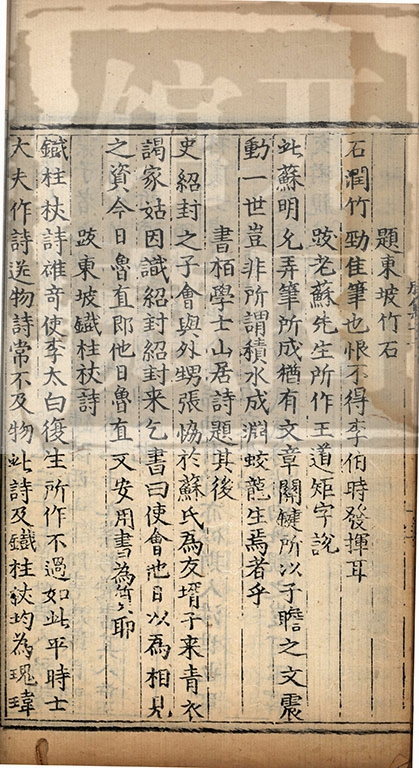 題東坡竹石
石潤竹勁佳筆也恨不得李伯時發揮耳
跋老蘇先生所作王道矩字說
此蘇明允弄筆所成猶有文章關鍵所以子瞻之文震
動一世豈非所謂積水成淵蛟龍生焉者乎
書栢學士山居詩題其後
史紹封之子會與外甥張協於蘇氏為友壻子来青衣
謁家姑因識紹封紹封来乞書曰使會他日以為相見
之資今日魯直即他日魯直又安用書為質耶
跋東坡鐵柱杖詩
鐵柱杖詩雄奇使李太白復生所作不過如此平時士
大夫作詩送物詩常不及物此詩及鐵柱杖均為瑰瑋